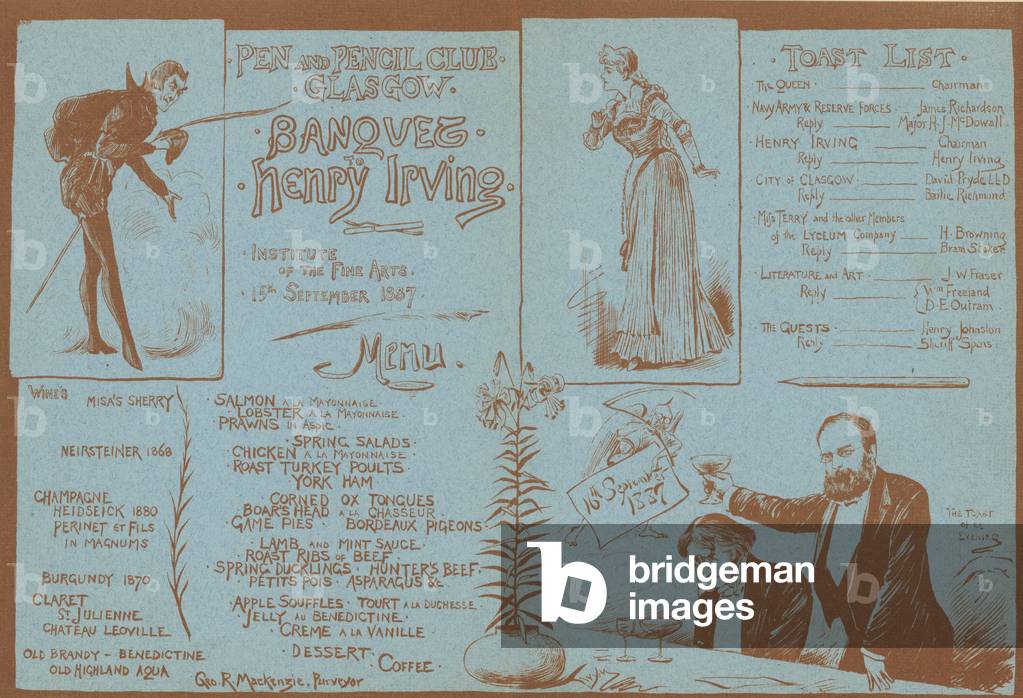 PEN AND PENCIL CLUB
GLASGOW.
BANQUET
TO
Henry Irving.
INSTITUTE
OF THE FINE ARTS.
15th SEPTEMBER 1887.
Menu.
WINES
MISA'S SHERRY
NEIRSTEINER 1868
CHAMPAGNE
HEIDSEICK 1880
PERINET ET FILS
IN MAGNUMS
BURGUNDY 1870
CLARET
ST JULIENNE
CHATEAU LEOVILLE
OLD BRANDY - BENEDICTINE
OLD HIGHLAND AQUA
SALMON A LA MAYONNAISE.
LOBSTER A LA MAYONNAISE.
PRAWNS IN ASPIC.
SPRING SALADS.
CHICKEN A LA MAYONNAISE.
ROAST TURKEY POULTS
YORK HAM
CORNED OX TONGUES
BOAR'S HEAD A LA CHASSEUR
GAME PIES. BORDEAUX PIGEONS.
LAMB AND MINT SAUCE.
ROAST RIBS OF BEEF
SPRING DUCKLINGS. HUNTER'S BEEF.
PETITS POIS. ASPARAGUS &c
APPLE SOUFFLES. TOURT A LA DUCHESSE.
JELLY AU BENEDICTINE.
CREME A LA VANILLE.
DESSERT.
COFFEE.
Geo. R. Mackenzie, Purveyor
TOAST LIST.
THE QUEEN Chairman
NAVY ARMY & RESERVE FORCES James Richardson
Reply Major H. J. McDowall
HENRY IRVING Chairman
Reply Henry Irving
CITY OF GLASGOW David Pryde LLD
Reply Bailie Richmond
Miss TERRY and the other Members
of the LYCEUM Company H. Browning
Reply Bram Stoker
LITERATURE AND ART J. W. Fraser
Reply Wm Freeland
D. E. Outram
THE GUESTS Henry Johnston
Reply Sheriff Spens.
16th September
1887
THE TOAST
of the
Evening
b
bridgeman
images